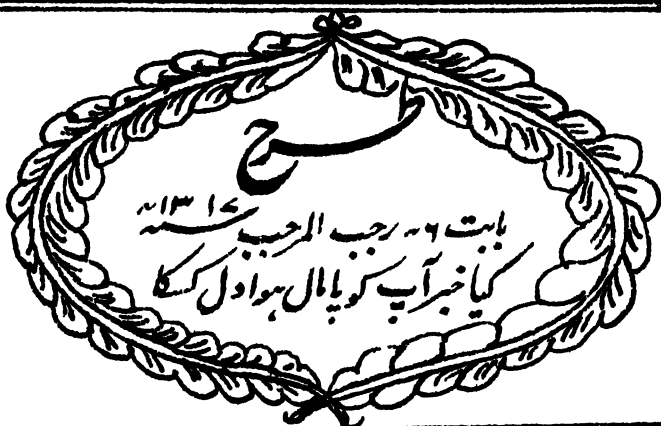 طرح
بابت ۶ رجب المرجب ۱۳۱۷ھ
کیا خبر آپ کو پامال ہوا دل کسکا